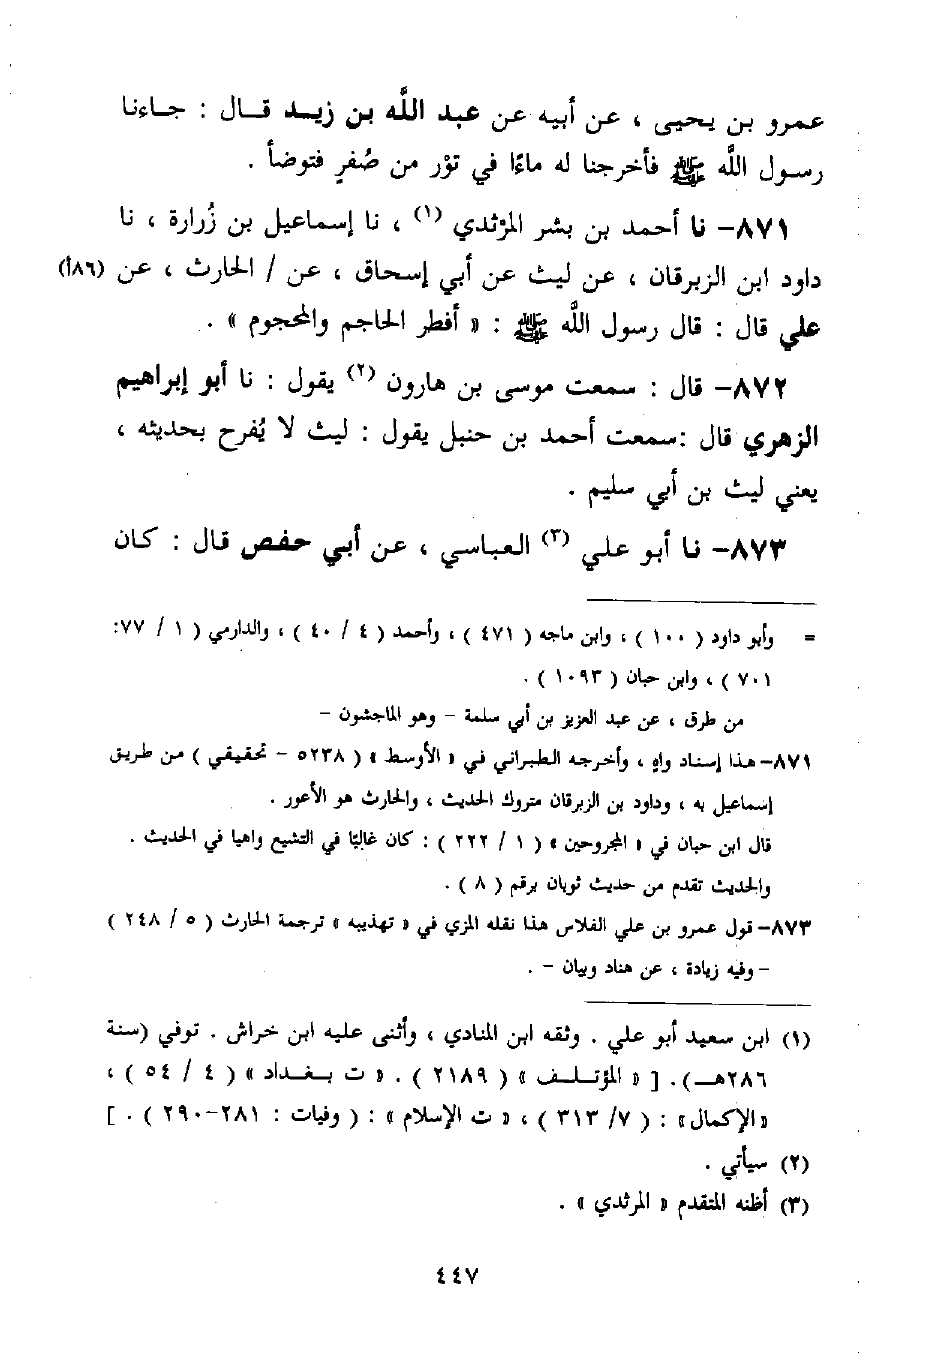 عمرو بن يحيى ، عن أبيه عن عبد الله بن زيد قال : جاءنا
رسول الله ﷺ فأخرجنا له ماءًا في تَوْر من صُفرٍ فتوضأ .
٨٧١- نا أحمد بن بشر المرْثدي (١) ، نا إسماعيل بن زُرارة ، نا
داود ابن الزبرقان ، عن ليث عن أبي إسحاق ، عن / الحارث ، عن (٨٦أ)
علي قال : قال رسول الله ﷺ : « أفطر الحاجم والمحجوم » .
٨٧٢- قال : سمعت موسى بن هارون (٢) يقول : نا أبو إبراهيم
الزهري قال :سمعت أحمد بن حنبل يقول : ليث لا يُفرح بحديثه ،
يعني ليث بن أبي سليم .
٨٧٣- نا أبو علي (٣) العباسي ، عن أبي حفص قال : كان
= وأبو داود ( ١٠٠ ) ، وابن ماجه ( ٤٧١ ) ، وأحمد ( ٤ / ٤٠ ) ، والدارمي ( ١ / ٧٧:
٧٠١ ) ، وابن حبان ( ١٠٩٣ ) .
من طرق ، عن عبد العزيز بن أبي سلمة - وهو الماجشون -
٨٧١- هذا إسناد واهٍ ، وأخرجه الطبراني في « الأوسط » ( ٥٢٣٨ - تحقيقي ) من طريق
إسماعيل به ، وداود بن الزبرقان متروك الحديث ، والحارث هو الأعور .
قال ابن حبان في « المجروحين » ( ١ / ٢٢٢ ) : كان غاليًا في التشيع واهيا في الحديث .
والحديث تقدم من حديث ثوبان برقم ( ٨ ) .
٨٧٣- قول عمرو بن علي الفلاس هذا نقله المزي في « تهذيبه » ترجمة الحارث ( ٥ / ٢٤٨ )
- وفيه زيادة ، عن هناد وبيان - .
(١) ابن سعيد أبو علي . وثقه ابن المنادي ، وأثنى عليه ابن خراش . توفي (سنة
٢٨٦هـ). [ « المؤتلف » ( ٢١٨٩ ) . « ت بغداد » ( ٤ / ٥٤ ) ،
«الإكمال» : ( ٧/ ٣١٣ ) ، « ت الإسلام » : ( وفيات : ٢٨١-٢٩٠ ) . ]
(٢) سيأتي .
(٣) أظنه المتقدم « المرثدي » .
٤٤٧